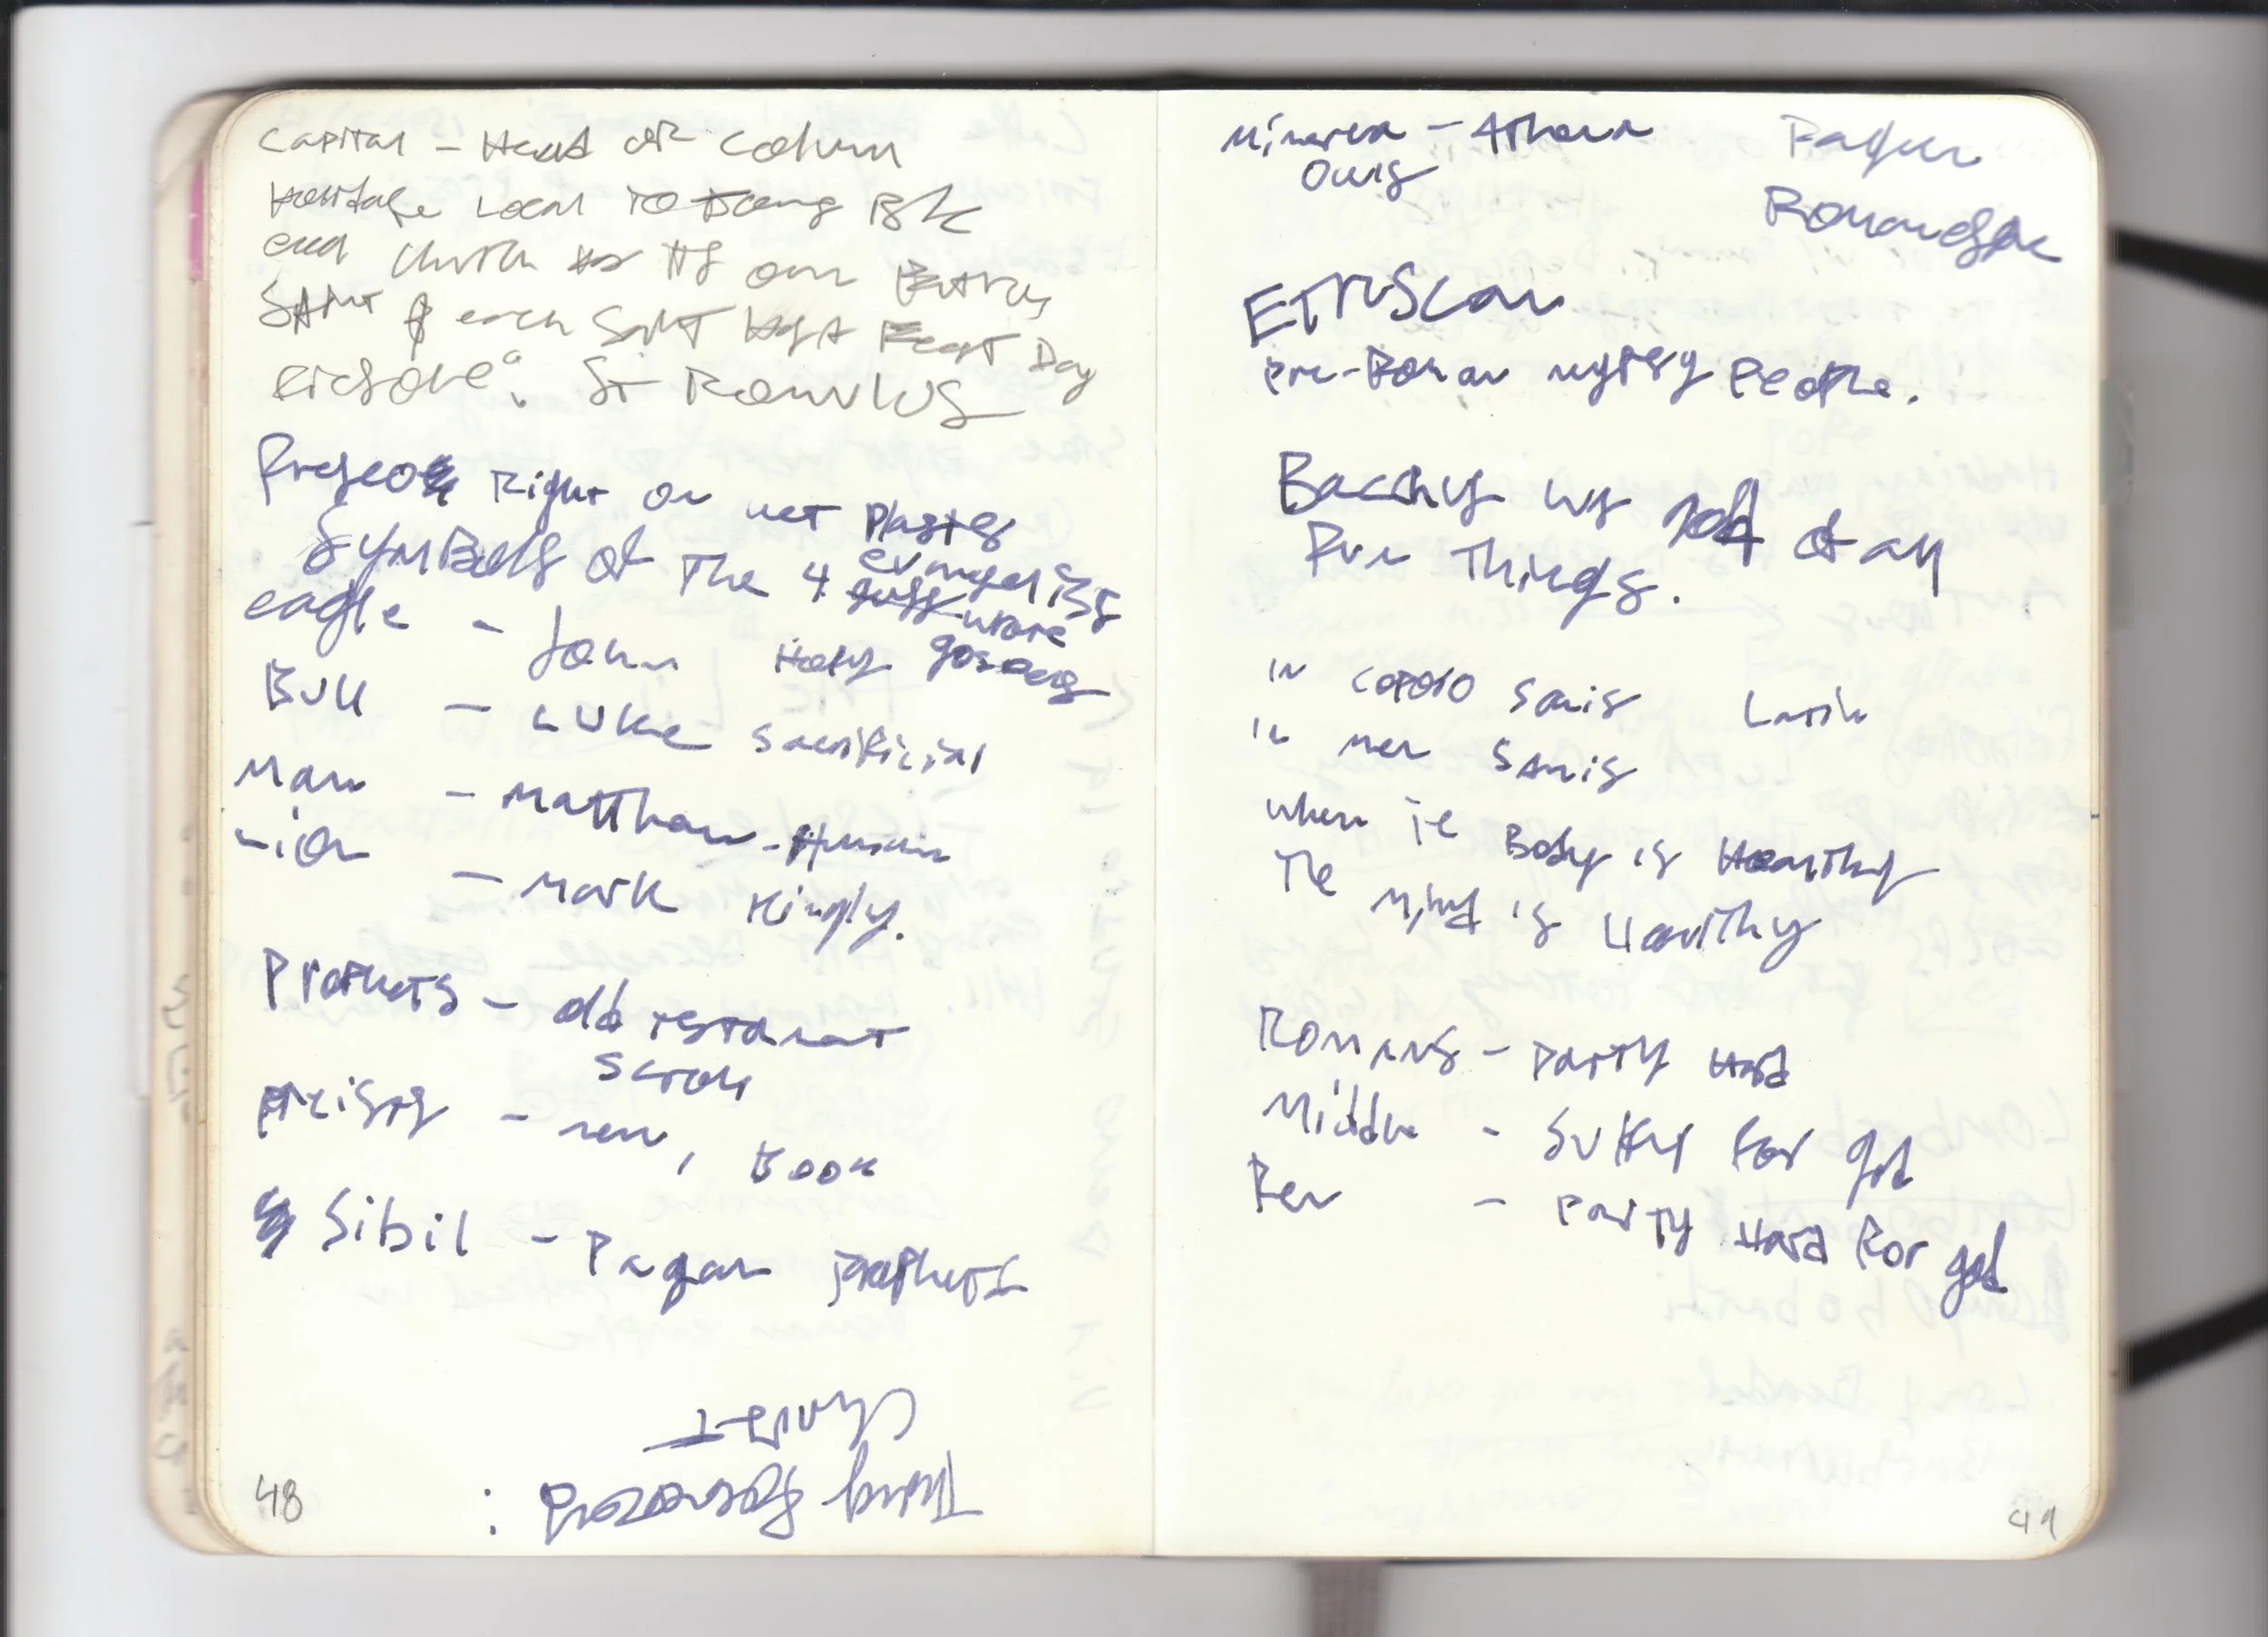 Capital - Head of Column
Heritage Local to
each church has its own Patron
Saint & each Saint has a Feast Day
Fiesole: St Romulus
Fresco Right on wet Plaster
Symbols of the 4 evangelists
eagle - John Holy
Bull - Luke Sacrificial
Man - Matthew - Human
Lion - Mark Kingly.
Prophets - old testament
scroll
Priests - new, Book
Sibil - Pagan Prophets
Christ
:
48
Minerva - Athena
Owls
Pagan
Romanesque
ETruScan
Pre-Roman mystery People.
Bacchus was god of all
Fun Things.
in corpo Sanis Latin
in men Sanis
when the Body is Healthy
The Mind is Healthy
Romans - Party Hard
Middle - Suffer for god
Ren - Party Hard For god
49